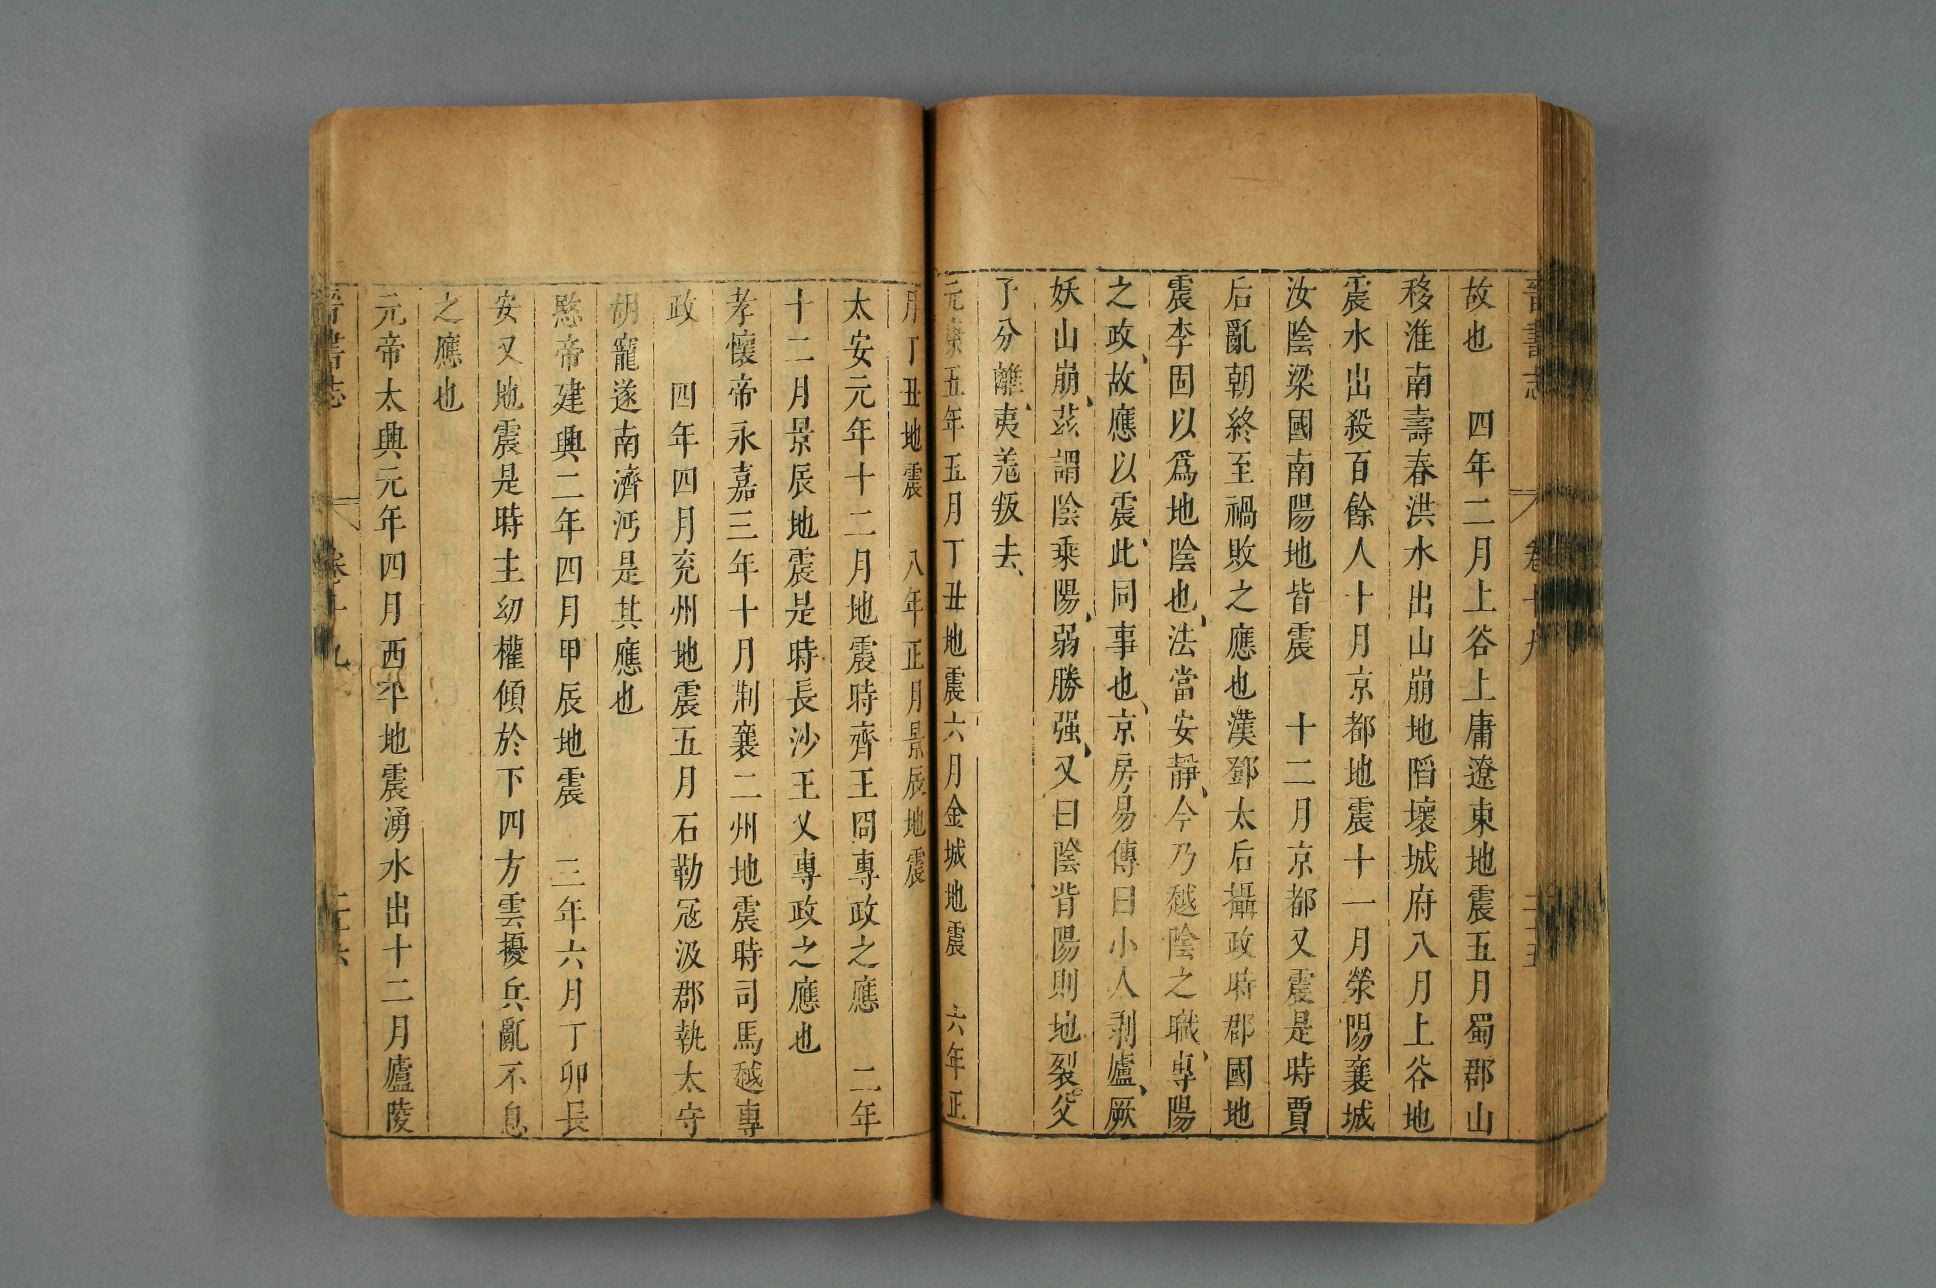 晉書志 卷十九 二十五
故也 四年二月上谷上庸遼東地震五月蜀郡山
移淮南壽春洪水出山崩地陷壞城府八月上谷地
震水出殺百餘人十月京都地震十一月滎陽襄城
汝陰梁國南陽地皆震 十二月京都又震是時賈
后亂朝終至禍敗之應也漢鄧太后攝政時郡國地
震李固以爲地陰也、法當安靜、今乃越陰之職、專陽
之政、故應以震、此同事也、京房易傳曰小人剥廬、厥
妖山崩、茲謂陰乘陽、弱勝强、又曰陰背陽則地裂。父
子分離、夷羗叛去、
元康五年五月丁丑地震六月金城地震 六年正
月丁丑地震 八年正月景辰地震
太安元年十二月地震時齊王冏專政之應 二年
十二月景辰地震是時長沙王乂專政之應也
孝懷帝永嘉三年十月荆襄二州地震時司馬越專
政 四年四月兗州地震五月石勒冦汲郡執太守
胡寵遂南濟沔是其應也
愍帝建興二年四月甲辰地震 三年六月丁卯長
安又地震是時主幼權傾於下四方雲擾兵亂不息
之應也
元帝太興元年四月西平地震湧水出十二月廬陵
晉書志 卷十九 二十六